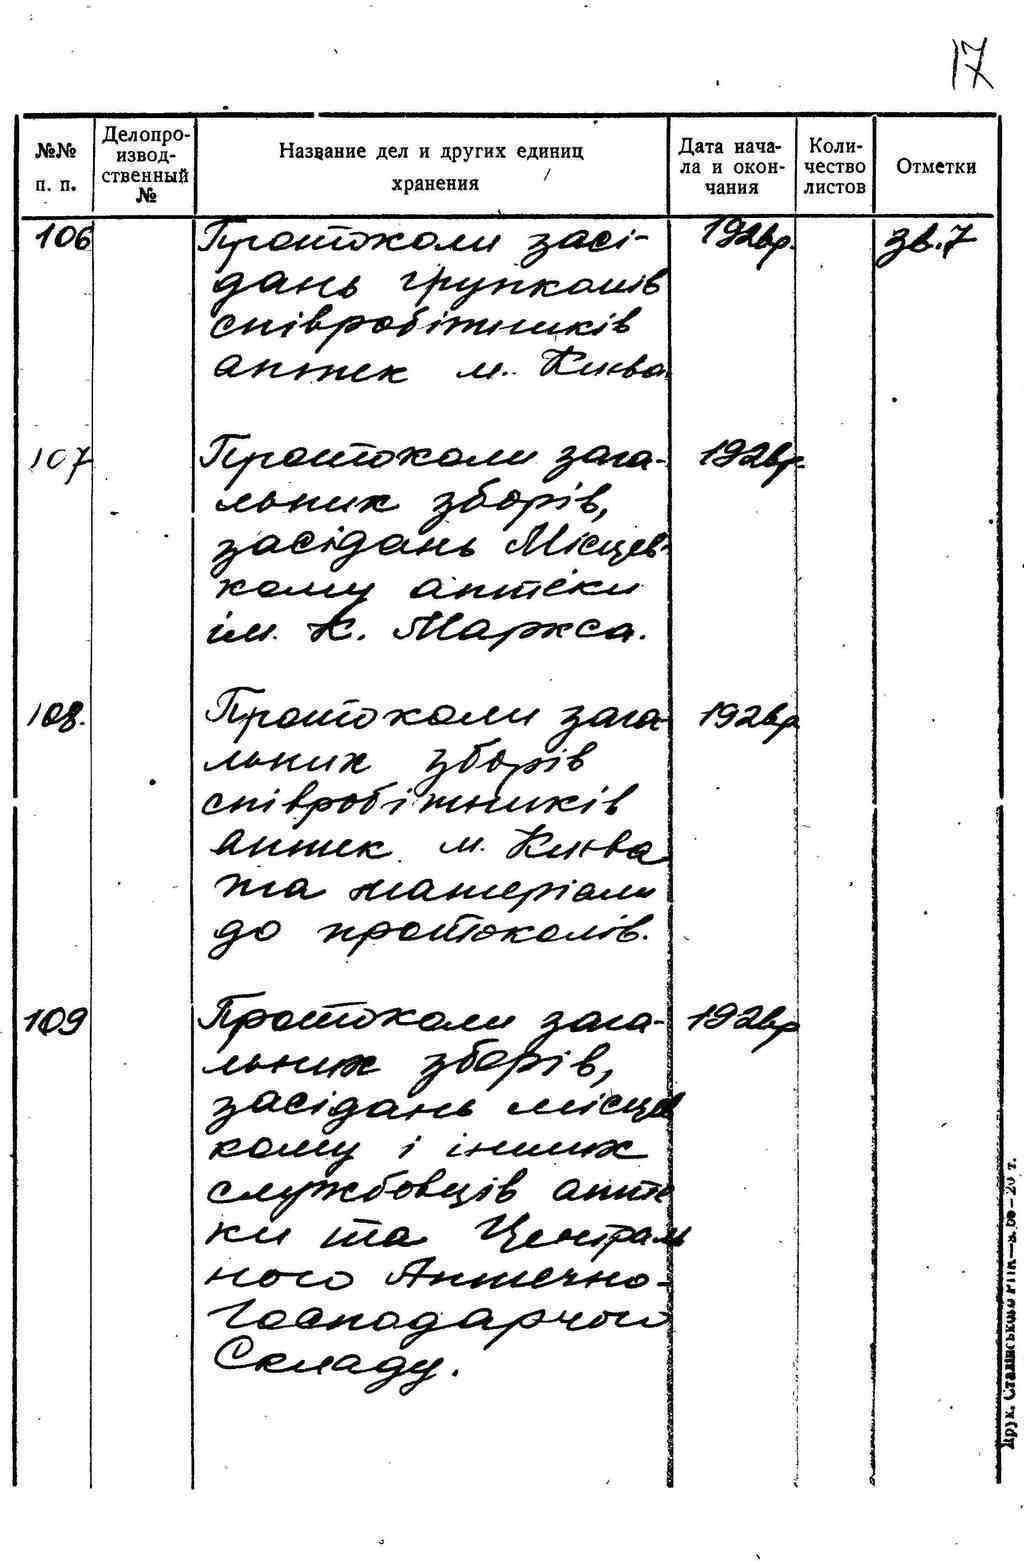 17
№№ п. п.
Делопро-
извод-
ственный
№
Название дел и других единиц
хранения
Дата нача-
ла и окон-
чания
Коли-
чество
листов
Отметки
106
Протоколи засі-
дань групкомів
співробітників
аптек м. Києва.
192вр.
зв.7
107
Протоколи зага-
льних зборів,
засідань Місцев-
кому аптеки
ім. К. Маркса.
192вр.
108.
Протоколи зага-
льних зборів
співробітників
аптек м. Києва
та матеріали
до протоколів.
192вр
109
Протоколи зага-
льних зборів,
засідань місцев
кому і інших
службовців апте
ки та Централь
ного Аптечно-
Господарчого
Складу.
192вр